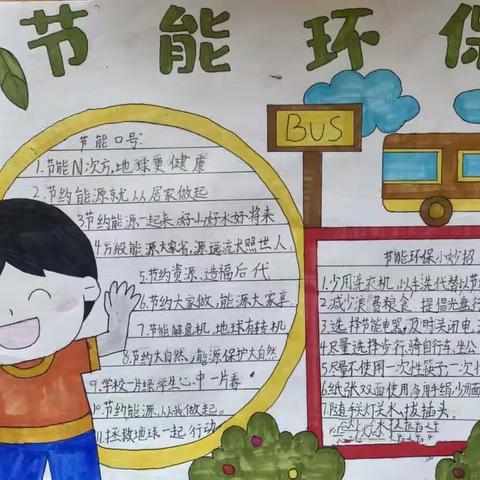 节能环保
BUS
节能口号:
1.节能N次方,地球更健康
2.节约能源就从居家做起
3节约能源一起来,好山好水好将来
4万般能源大家省,源远流长照世人.
5.节约资源、造福后代
6.节约大家做,能源大家享
7.节能解危机,地球有转机
8.节约大自然,能源保护大自然
9.学校一片绿学生心中一片春
10.节约能源,从我做起。
11.拯救地球一起行动
节能环保小妙招
1.少用洗衣机,以手洗代替以节
2.减少浪费粮食 提倡光盘行
3.选择节能电器,及时关闭电
4.尽量选择步行,骑自行车、坐公
5.尽量不使用一次性筷子,一次性
6.纸张双面使用,多用手绢,少用面
7.随手关灯关水,拔插头.